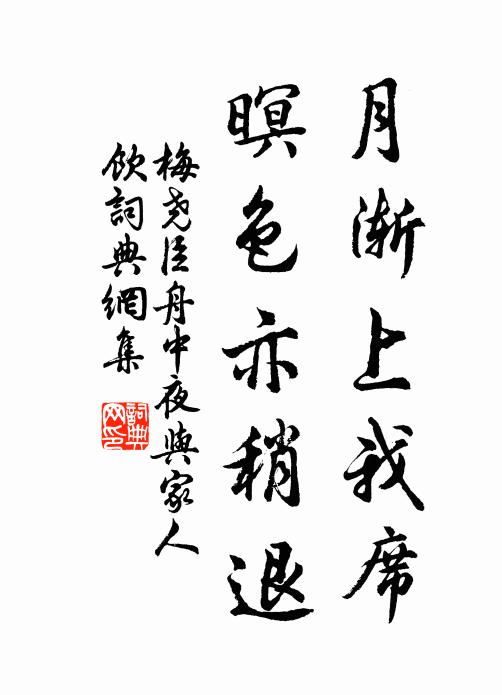 月漸上我席
暝色亦稍退
梅堯臣舟中夜與家人
飲詞典網集
詞典
网印